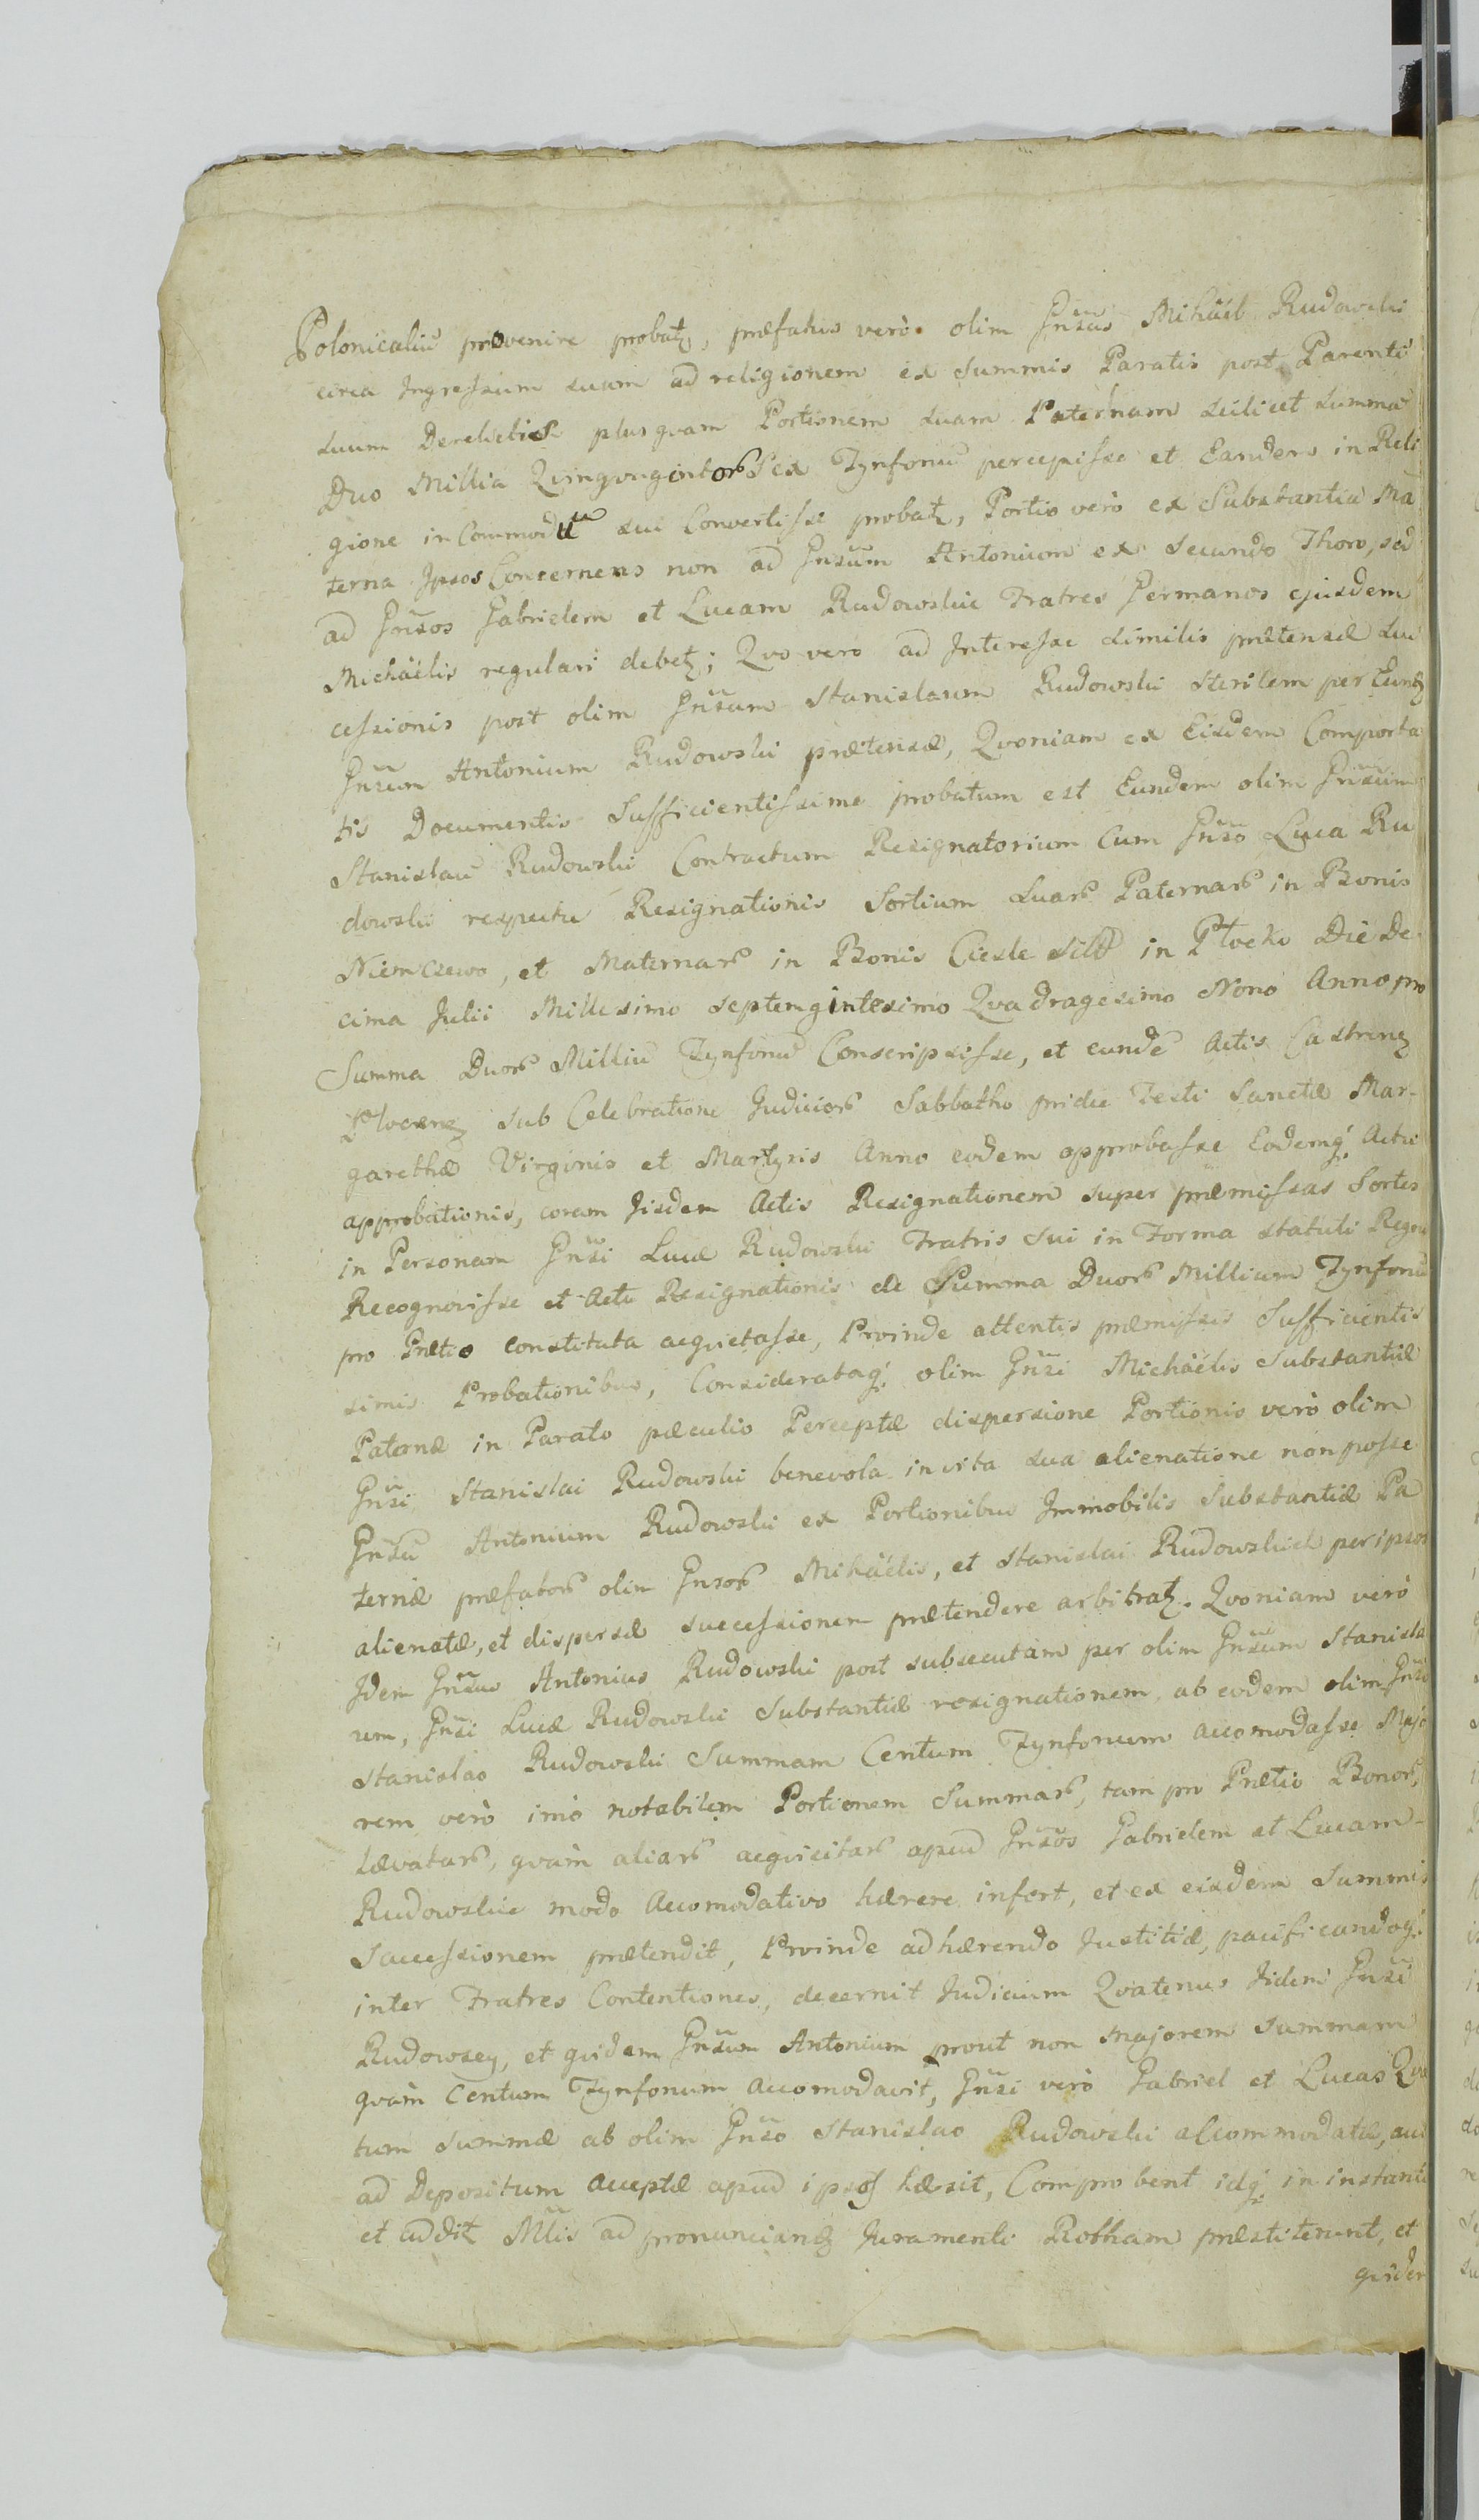 Polonicaliũ provenire probatꝫ, præfatus verò olim Gn̄sus Mihäel Rudowski
circa Ingressum suum ad religionem ex Summis Paratis post Parentẽ
suum Derelictis plusquam Portionem suam Paternam scilicet summã
Duo Millia Qvingvgentor Sex Tynfonũ percepisse et Eandem in Reli
gione in Commodũ sui Convertisse probatꝫ, Portio verò ex Substantia Ma
terna Ipsos Concernens non ad Gn̄sum Antonium ex Secundo Thoro, sed
ad Gn̄sos Gabrielem et Lucam Rudowskie Fratres Germanos ejusdem
Michäelis regulari debetꝫ; Qvo verò ad Interesse similis prætensæ Suc
cessionis post olim Gn̄sum Stanislaum Rudowski sterilem per Eundꝫ
Gn̄sum Antonium Rudowski prætensæ, Qvoniam ex Eisdem Comporta
tis Documentis Sufficientissime probatum est Eundem olim Gn̄sum
Stanislaũ Rudowski Contractum Resignatorium Cum Gn̄so Luca Ru
dowski respectu Resignationis Sortium suar Paternar in Bonis
Niemczewo, et Maternar in Bonis Ciesle sitt in Płocko Die De
cima Julii Millesimo Septemgintesimo Qvadragesimo Nono Anno pro
Summa Duor Milliũ Tynfonũ Conscripsisse, et eundẽ Actis Castrenꝫ
Płocenꝫ sub Celebratione Judicior Sabbatho pridie Festi Sanctæ Mar-
garethæ Virginis et Martyris Anno eodem approbasse Eodemq́ Actu
approbationis, coram Iisdem Actis Resignationem super præmissas Sortes
in Personam Gn̄si Lucæ Rudowski Fratris sui in Forma statuti Regni
Recognovisse et Actu Resignationis de Summa Duor Millium Tynfonũ
pro Prætio constituta acqvietasse, Proinde attentis præmissis Sufficientis
simis Probationibus, Considerataq́ olim Gn̄si Michäelis Substantiæ
Paternæ in Parato pæculio Perceptæ dispersione Portionis verò olim
Gn̄si Stanislai Rudowski benevola in vita sua alienatione non posse
Gn̄sũ Antonium Rudowski ex Portionibus Immobilis Substantiæ Pa
ternæ præfator olim Gn̄sor Mihäelis, et Stanislai Rudowskich per ipsos
alienatæ, et dispersæ successionem prætendere arbitratꝫ. Qvoniam verò
Idem Gn̄sus Antonius Rudowski post subsecutam per olim Gn̄sum Stanisla
um, Gn̄si Lucæ Rudowski Substantiæ resignationem, ab eodem olim Gn̄so
Stanislao Rudowski Summam Centum Tynfonum accomodasse Majo
rem verò imò notabilem Portionem Summar, tam pro Prætio Bonor,
Lævatar, qvàm aliar acqvisitar apud Gn̄sos Gabrielem et Lucam-
Rudowskie modo Accomodativo hærere infert, et ex eisdem Summis
Successionem prætendit, Proinde adhærendo Justitiæ, pacificandoq́
inter Fratres Contentiones, decernit Judicium Qvatenus Iidem Gn̄si
Rudowscy, et qvidem Gn̄sum Antonium prout non majorem summam
qvàm Centum Tynfonum Accomodavit, Gn̄si verò Gabriel et Lucas Qva
tum summæ ab olim Gn̄so Stanislao Rudowski accommodatæ, aut
ad Depositum acceptæ apud ipsos hæsit, Comprobent idq́ in instanti
et addit Mltis ad pronuncianꝫ Juramenti Rottham præstiterunt, et
qvidem